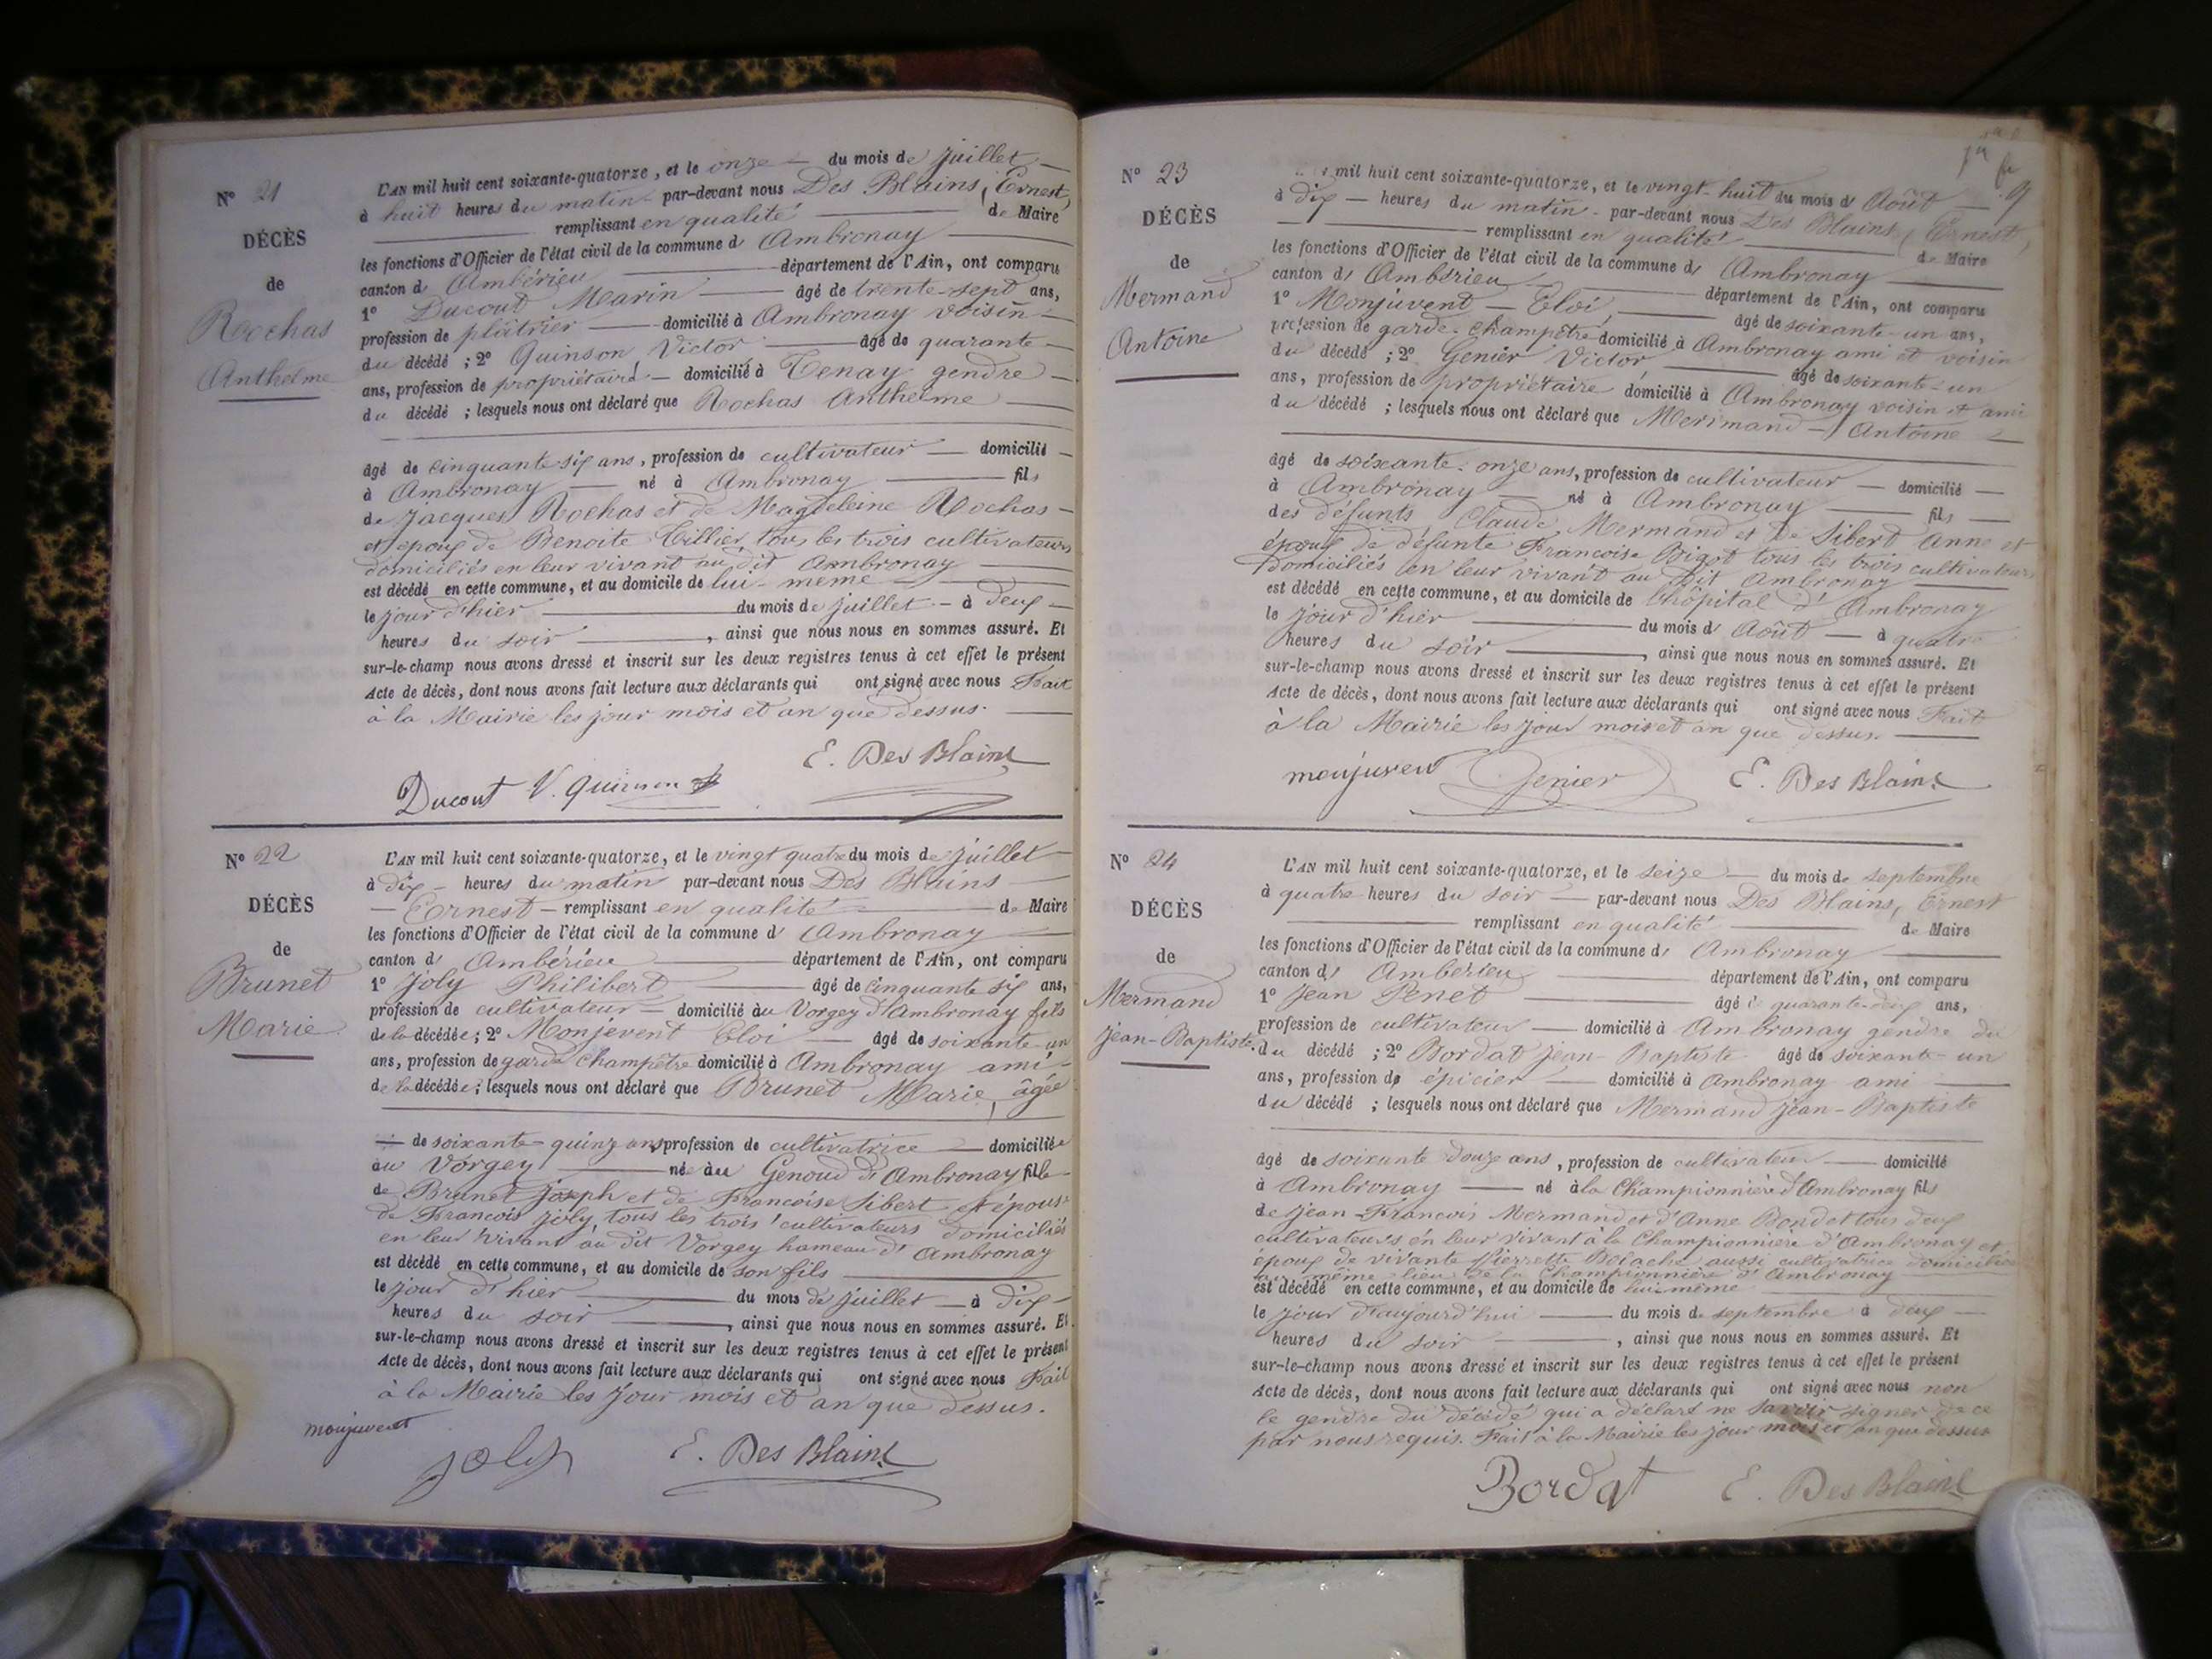 N° 21
DÉCÈS
de
Rochas
Anthelme
L'AN mil huit cent soixante-quatorze, et le onze — du mois de Juillet —
à huit heures du matin - par-devant nous Des Blains, Ernest,
remplissant en qualité — de Maire
les fonctions d'Officier de l'état civil de la commune d Ambronay
canton d Ambérieu — département de l'Ain, ont comparu
1° Ducout Marin — âgé de trente-sept ans,
profession de plâtrier — domicilié à Ambronay voisin —
du décédé ; 2° Quinson Victor — âgé de quarante —
ans, profession de propriétaire — domicilié à Tenay gendre —
du décédé ; lesquels nous ont déclaré que Rochas Anthelme —
âgé de cinquante six ans, profession de cultivateur — domicilié —
à Ambronay — né à Ambronay — fils
de Jacques Rochas et de Magdeleine Rochas —
et époux de Benoite Tillier, tous les trois cultivateurs
domiciliés en leur vivant au dit Ambronay —
est décédé en cette commune, et au domicile de lui-meme —
le jour d'hier — du mois de juillet - à deux —
heures du soir —, ainsi que nous nous en sommes assuré. Et
sur-le-champ nous avons dressé et inscrit sur les deux registres tenus à cet effet le présent
Acte de décès, dont nous avons fait lecture aux déclarants qui ont signé avec nous Fait
à la Mairie les jour mois et an que dessus. —
E. Des Blains
Ducout V. Quinson
N° 22
DÉCÈS
de
Brunet
Marie
L'AN mil huit cent soixante-quatorze, et le vingt quatre du mois de Juillet —
à dix - heures du matin par-devant nous Des Blains —
— Ernest — remplissant en qualité — de Maire
les fonctions d'Officier de l'état civil de la commune d' Ambronay —
canton d' Ambérieu — département de l'Ain, ont comparu
1° Joly Philibert — âgé de cinquante six ans,
profession de cultivateur — domicilié au Vorgey d'Ambronay fils
de la décédée ; 2° Monjevent Eloi — âgé de soixante-un
ans, profession de garde champêtre domicilié à Ambronay ami-
de la décédée ; lesquels nous ont déclaré que Brunet Marie, âgée
— de soixante-quinz ans, profession de cultivatrice — domiciliée
au Vorgey — née au Genoud d'Ambronay fille
de Brunet Joseph et de Francoise Sibert et épouse
de Francois Joly, tous les trois cultivateurs domiciliés
en leur vivant au dit Vorgey hameau d' Ambronay
est décédé en cette commune, et au domicile de son fils —
le jour d'hier — du mois de juillet — à dix —
heures du soir —, ainsi que nous nous en sommes assuré. Et
sur-le-champ nous avons dressé et inscrit sur les deux registres tenus à cet effet le présent
Acte de décès, dont nous avons fait lecture aux déclarants qui ont signé avec nous Fait
à la Mairie les jour mois et an que dessus.
monjuvent
Joly E. Des Blains
N° 23
DÉCÈS
de
Mermand
Antoine
mil huit cent soixante-quatorze, et le vingt-huit du mois d' Août — 9
à dix — heures du matin - par-devant nous Des Blains, Ernest,
remplissant en qualité — de Maire
les fonctions d'Officier de l'état civil de la commune d' Ambronay
canton d' Ambérieu — département de l'Ain, ont comparu
1° Monjuvent — Eloi, — âgé de soixante-un ans,
profession de garde-champêtre domicilié à Ambronay ami et voisin
du décédé ; 2° Genier Victor — âgé de soixante-un
ans, profession de propriétaire domicilié à Ambronay voisin et ami
du décédé ; lesquels nous ont déclaré que Mermand — Antoine —
âgé de soixante-onze ans, profession de cultivateur — domicilié —
à Ambronay — né à Ambronay — fils —
des défunts Claude Mermand et de Sibert Anne et
époux de défunte Francoise Bigot tous les trois cultivateurs
Domiciliés en leur vivant au dit Ambronay —
est décédé en cette commune, et au domicile de l'hôpital d' Ambronay
le jour d'hier — du mois d' Août — à quatre
heures du soir —, ainsi que nous nous en sommes assuré. Et
sur-le-champ nous avons dressé et inscrit sur les deux registres tenus à cet effet le présent
Acte de décès, dont nous avons fait lecture aux déclarants qui ont signé avec nous Fait
à la Mairie les jour mois et an que dessus. —
monjuvent Genier E. Des Blains
N° 24
DÉCÈS
de
Mermand
Jean-Baptiste
L'AN mil huit cent soixante-quatorze, et le seize — du mois de septembre
à quatre heures du soir — par-devant nous Des Blains, Ernest
remplissant en qualité — de Maire
les fonctions d'Officier de l'état civil de la commune d' Ambronay —
canton d' Ambérieu — département de l'Ain, ont comparu
1° Jean Penet — âgé de quarante-deux ans,
profession de cultivateur — domicilié à Ambronay gendre du
du décédé ; 2° Bordat Jean-Baptiste âgé de soixante-un
ans, profession de épicier — domicilié à Ambronay ami —
du décédé ; lesquels nous ont déclaré que Mermand Jean-Baptiste
âgé de soixante douze ans, profession de cultivateur — domicilié
à Ambronay — né à la Championnière d'Ambronay fils
de Jean-Francois Mermand et d'Anne Bondet tous deux
cultivateurs en leur vivant à la Championnière d'Ambronay et
époux de vivante Pierrette Bolache aussi cultivatrice domiciliée
au même lieu de la Championnière d' Ambronay —
est décédé en cette commune, et au domicile de lui-même —
le jour d'aujourd'hui — du mois de septembre à deux —
heures du soir —, ainsi que nous nous en sommes assuré. Et
sur-le-champ nous avons dressé et inscrit sur les deux registres tenus à cet effet le présent
Acte de décès, dont nous avons fait lecture aux déclarants qui ont signé avec nous non
le gendre du décédé qui a déclaré ne savoir signer de ce
par nous requis. Fait à la Mairie les jour mois et an que dessus
Bordat E. Des Blains